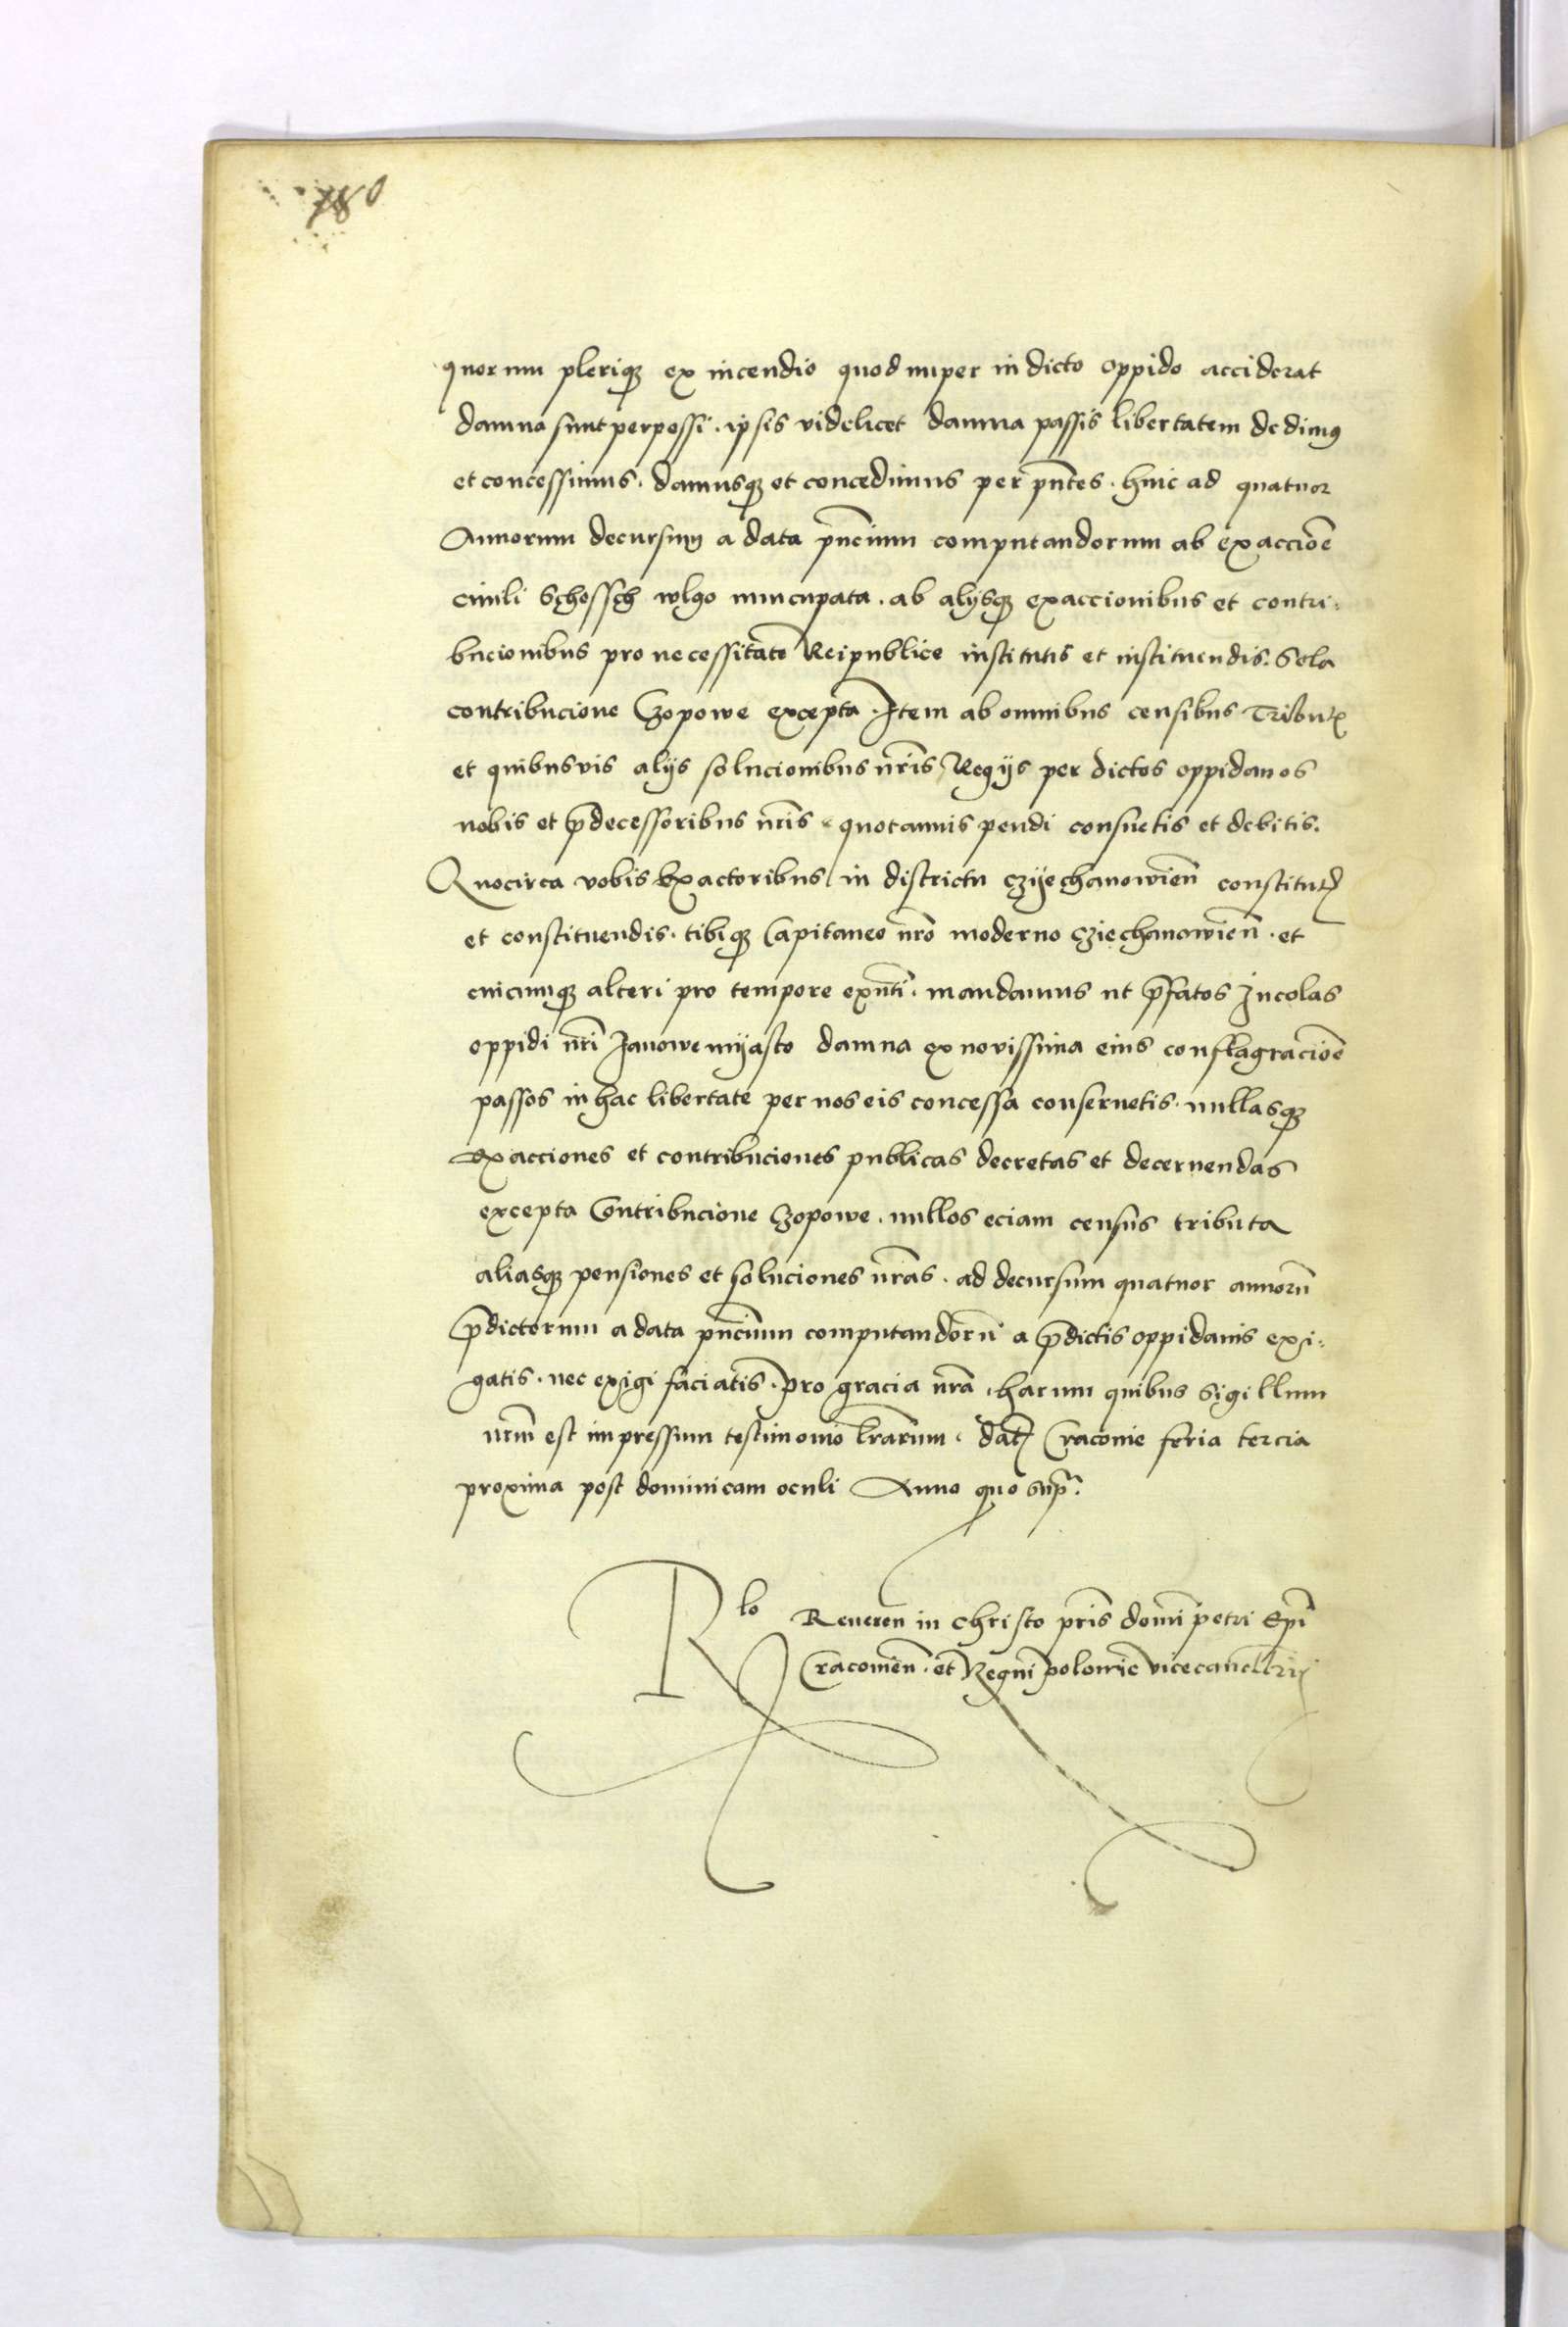 780
quorum pleriqꝫ ex incendio quod nuper in dicto oppido acciderat
damna sunt perpessi . ipsis videlicet damna passis libertatem dedimꝰ
et concessimus . damusqꝫ et concedimus per pn̄tes . hinc ad quatuor
Annorum decursum a data pn̄cium computandorum ab exaccioē
ciuili Schossch wlgo nuncupata . ab alijsqꝫ exaccionibus et contri⸗
bucionibus pro necessitate Reipublice institutis et instituendis. Sola
contribucione Czopowe excepta . Item ab omnibus censibus Tributꝭ
et quibusvis alijs solucionibus nr̄is Regijs per dictos oppidanos
nobis et p̄decessoribus nr̄is quotannis pendi consuetis et debitis.
Quocirca vobis Exactoribus in districtu Czijechanowień constitutꝭ
et constituendis . tibiqꝫ Capitaneo nr̄o moderno Cziechanowień . et
cuicunqꝫ alteri pro tempore exn̄ti . mandamus ut p̄fatos Incolas
oppidi nr̄i Janowemyasto damna ex novissima eius conflagracioē
passos in hac libertate per nos eis concessa conseruetis . nullasqꝫ
exacciones et contribuciones publicas decretas et decernendas
excepta Contribucione Czopowe . nullos eciam census tributa
aliasqꝫ pensiones et soluciones nr̄as . ad decursum quatuor annorū
p̄dictorum a data pn̄cium computandorū a p̄dictis oppidanis exi⸗
gatis . nec exigi faciatis . pro gracia nr̄a . harum quibus Sigillum
nr̄m est impressum testimonio lr̄arum . Datꝭ Cracouie feria tercia
proxima post dominicam oculi Anno quo sup̄.
Rlo Reueren in Christo pr̄is domī petri Ep̄i
Cracouień . et Regni polonie vicecancellrij